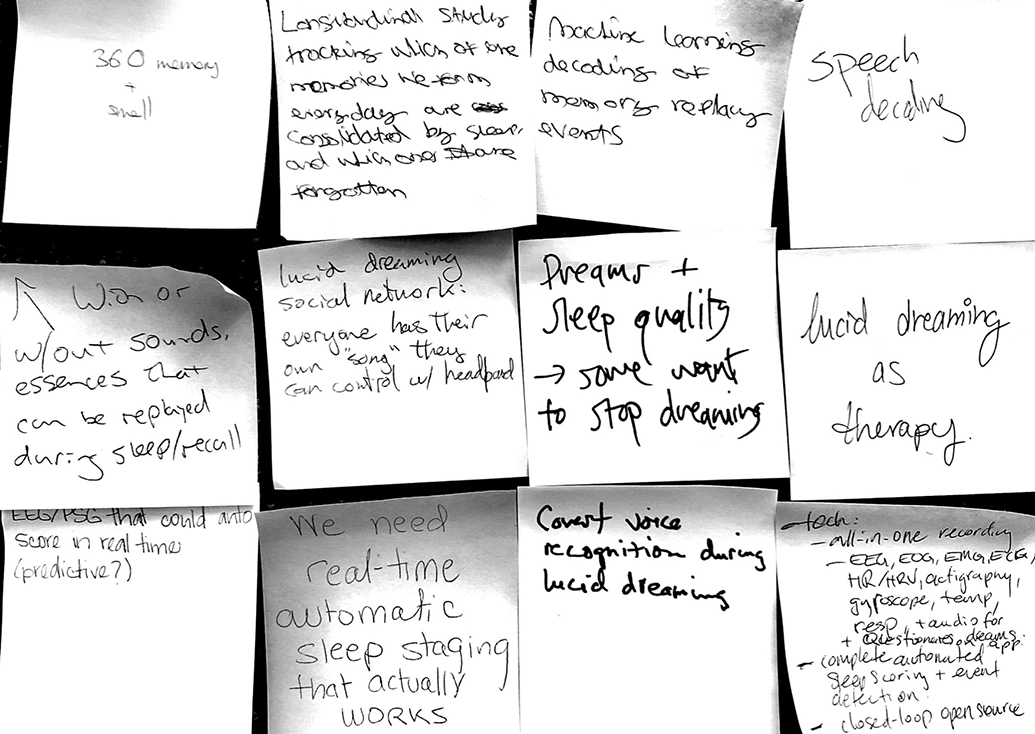 360 memory
+
smell
Longitudinal study
tracking which of the
memories we form
everyday are
consolidated by sleep,
and which ones are
forgotten
Machine learning
decoding of
memory replay
events
speech
decoding
With or
w/out sounds,
essences that
can be replayed
during sleep/recall
lucid dreaming
social network:
everyone has their
own "song" they
can control w/ headband
Dreams +
sleep quality
→ some want
to stop dreaming
lucid dreaming
as
therapy.
EEG/PSG that could auto
score in real time
(predictive?)
We need
real-time
automatic
sleep staging
that actually
WORKS
Covert voice
recognition during
lucid dreaming
- tech:
- all-in-one recording
- EEG, EOG, EMG, ECG,
HR/HRV, actigraphy,
gyroscope, temp,
resp, + audio for
+ Questionaires, dreams
app.
- complete automated
sleep scoring + event
detection
- closed-loop open source